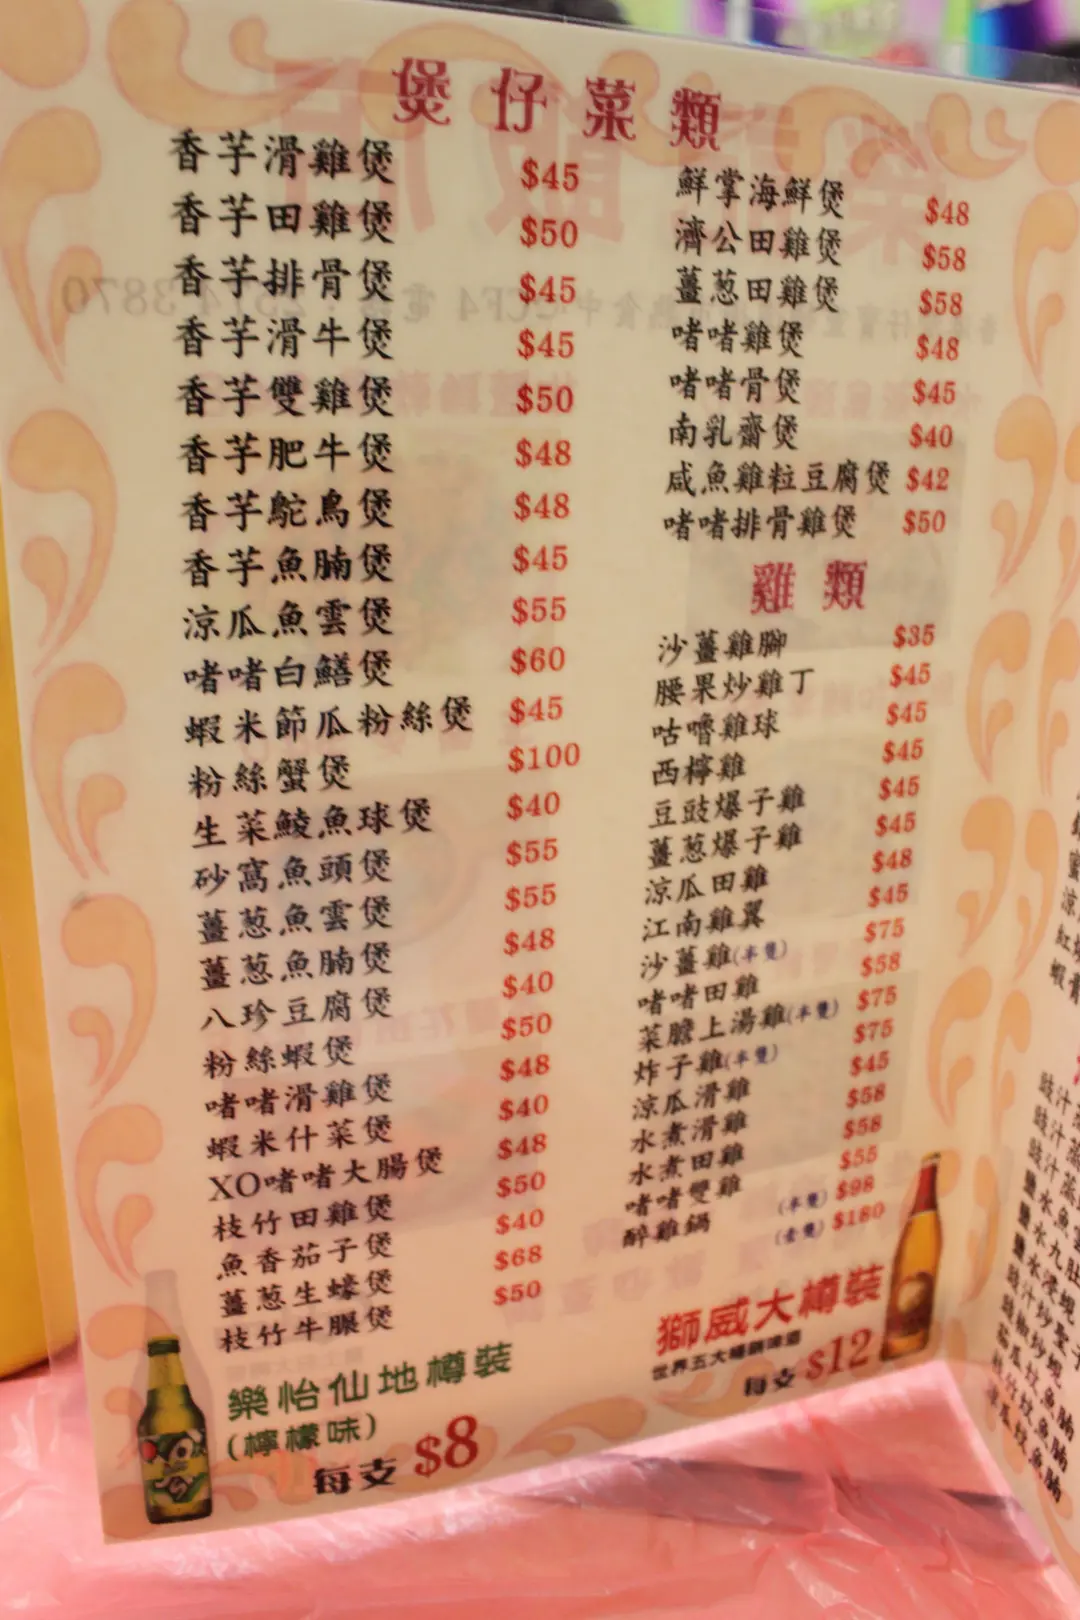 煲仔菜類
香芋滑雞煲 $45
香芋田雞煲 $50
香芋排骨煲 $45
香芋滑牛煲 $45
香芋雙雞煲 $50
香芋肥牛煲 $48
香芋鴕鳥煲 $48
香芋魚腩煲 $45
涼瓜魚雲煲 $55
啫啫白鱔煲 $60
蝦米節瓜粉絲煲 $45
粉絲蟹煲 $100
生菜鯪魚球煲 $40
砂窩魚頭煲 $55
薑葱魚雲煲 $55
薑葱魚腩煲 $48
八珍豆腐煲 $40
粉絲蝦煲 $50
啫啫滑雞煲 $48
蝦米什菜煲 $40
XO啫啫大腸煲 $48
枝竹田雞煲 $50
魚香茄子煲 $40
薑葱生蠔煲 $68
枝竹牛腩煲 $50
鮮掌海鮮煲 $48
濟公田雞煲 $58
薑葱田雞煲 $58
啫啫雞煲 $48
啫啫骨煲 $45
南乳齋煲 $40
咸魚雞粒豆腐煲 $42
啫啫排骨雞煲 $50
雞類
沙薑雞腳 $35
腰果炒雞丁 $45
咕嚕雞球 $45
西檸雞 $45
豆豉爆子雞 $45
薑葱爆子雞 $45
涼瓜田雞 $48
江南雞翼 $45
沙薑雞(半隻) $75
啫啫田雞 $58
菜膽上湯雞(半隻) $75
炸子雞(半隻) $75
涼瓜滑雞 $45
水煮滑雞 $58
水煮田雞 $58
啫啫雙雞 $55
醉雞鍋 (半隻) $98
(全隻) $180
樂怡仙地樽裝
(檸檬味)
每支 $8
獅威大樽裝
世界五大暢銷啤酒
每支 $12